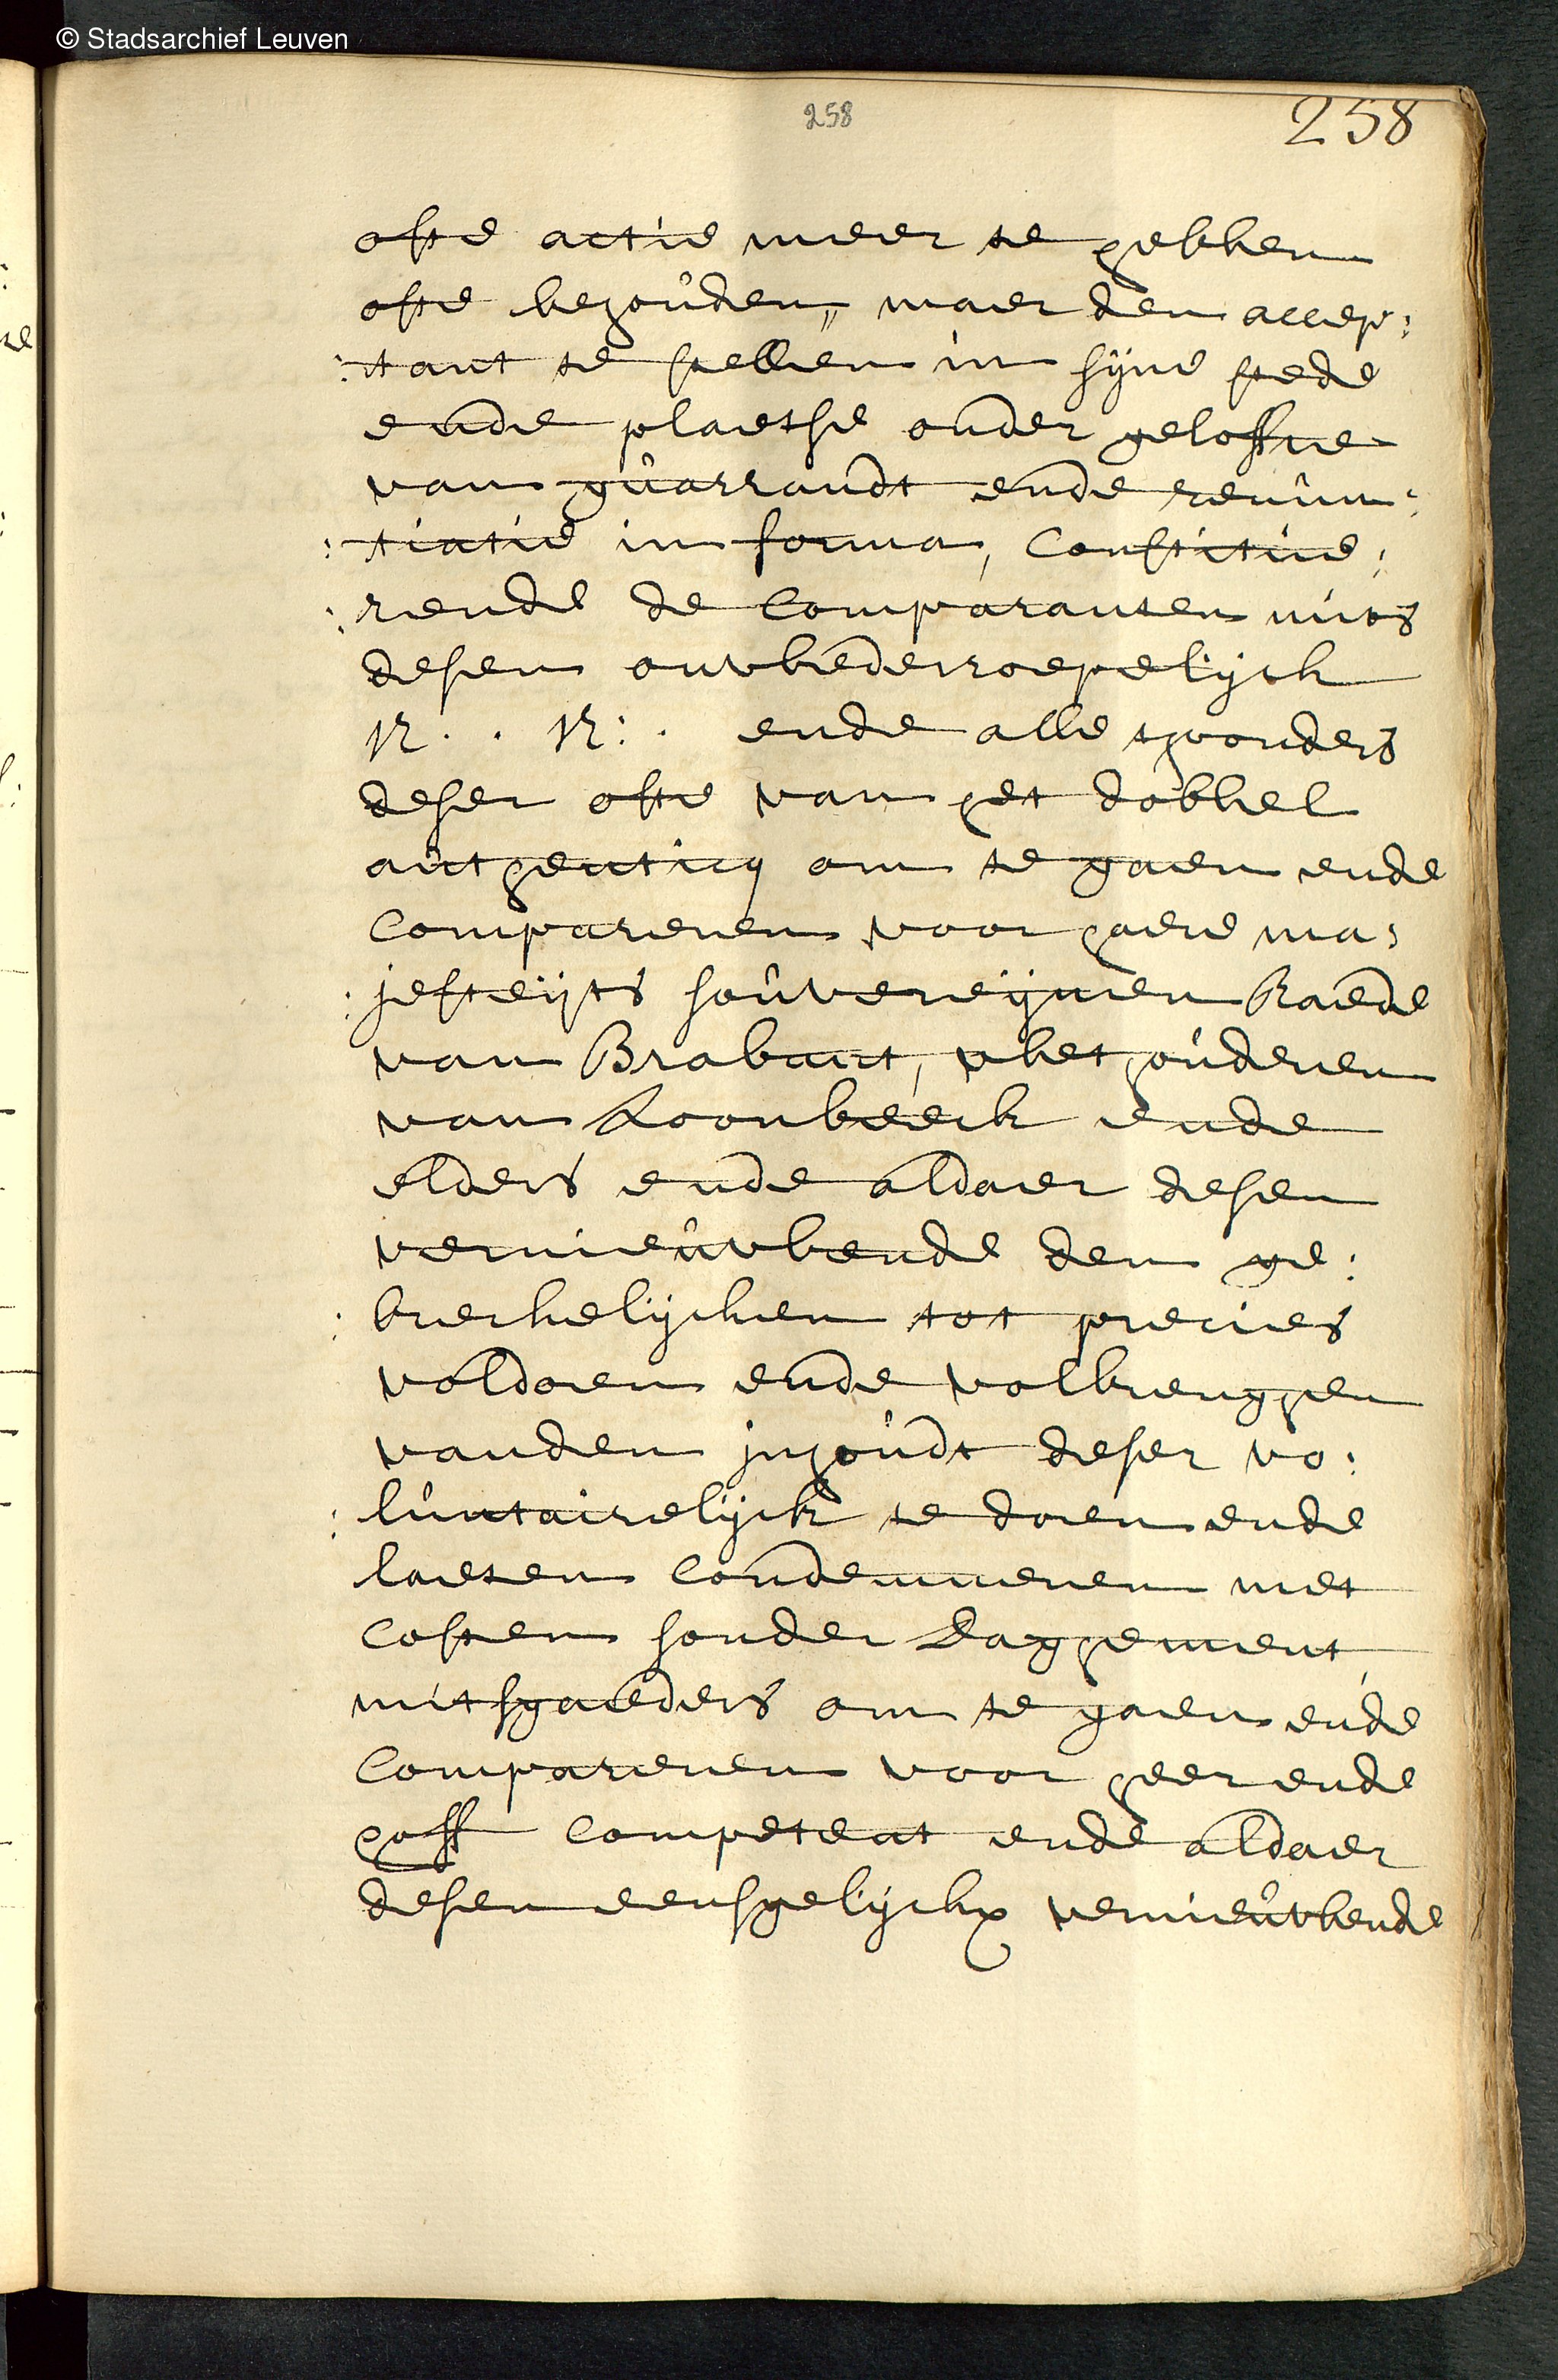 © Stadsarchief Leuven
258
258
ofte actie meer te hebben
ofte behouden, maer den accep:
:tant te stellen in sijne stede
ende plaetse onder geloffne
van guarrandt ende renun:
:tiatie in forma, Constitue:
:rende de Comparanten mits
desen onwederroepelijck
N. . N: . ende alle thonders
deser ofte van het dobbel
authenticq om te gaen ende
Compareren voor haere ma:
:jesteijts souvereijnen Raede
van Brabant, wethouderen
van Loonbeeck ende
elders ende aldaer desen
vernieuwende den ge:
:breckelijcken tot precies
voldoen ende volbrenghen
vanden jnhoudt deser vo:
:luntairelijck te doen ende
laeten Condemneren met
Costen sonder daghement,
mitsgaeders om te gaen ende
Compareren voor heer ende
hoff Competent ende aldaer
desen eensgelijckx vernieuwende